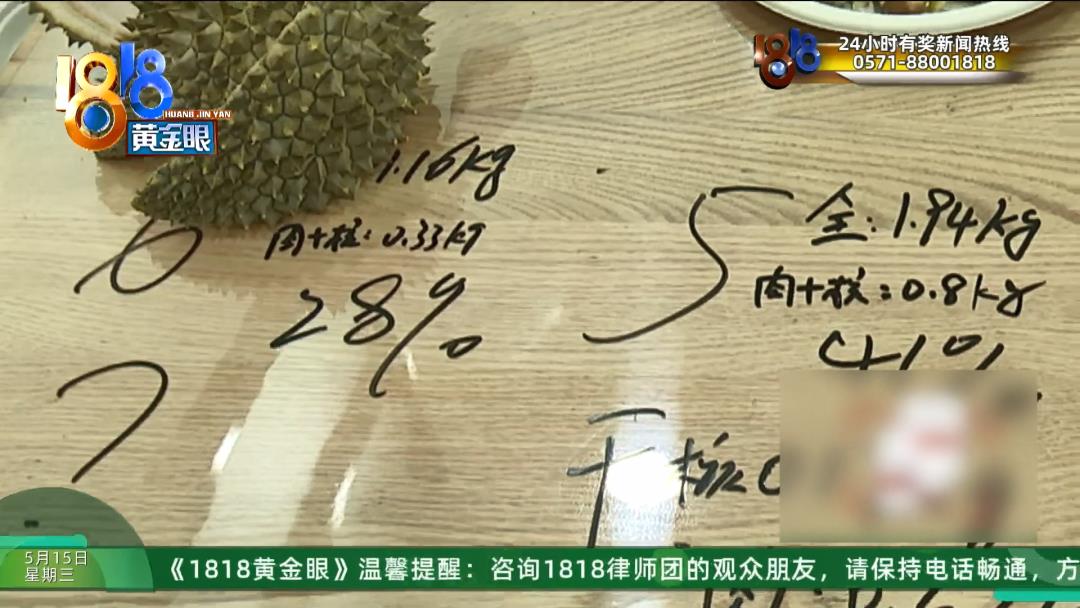 1818
HUANG JIN YAN
黄金眼
1818
24小时有奖新闻热线
0571-88001818
1.16kg
6
肉+核:0.33kg
28%
7
5
全:1.94kg
肉+核:0.8kg
41%
核0
5月15日
星期三
《1818黄金眼》温馨提醒：咨询1818律师团的观众朋友，请保持电话畅通，方